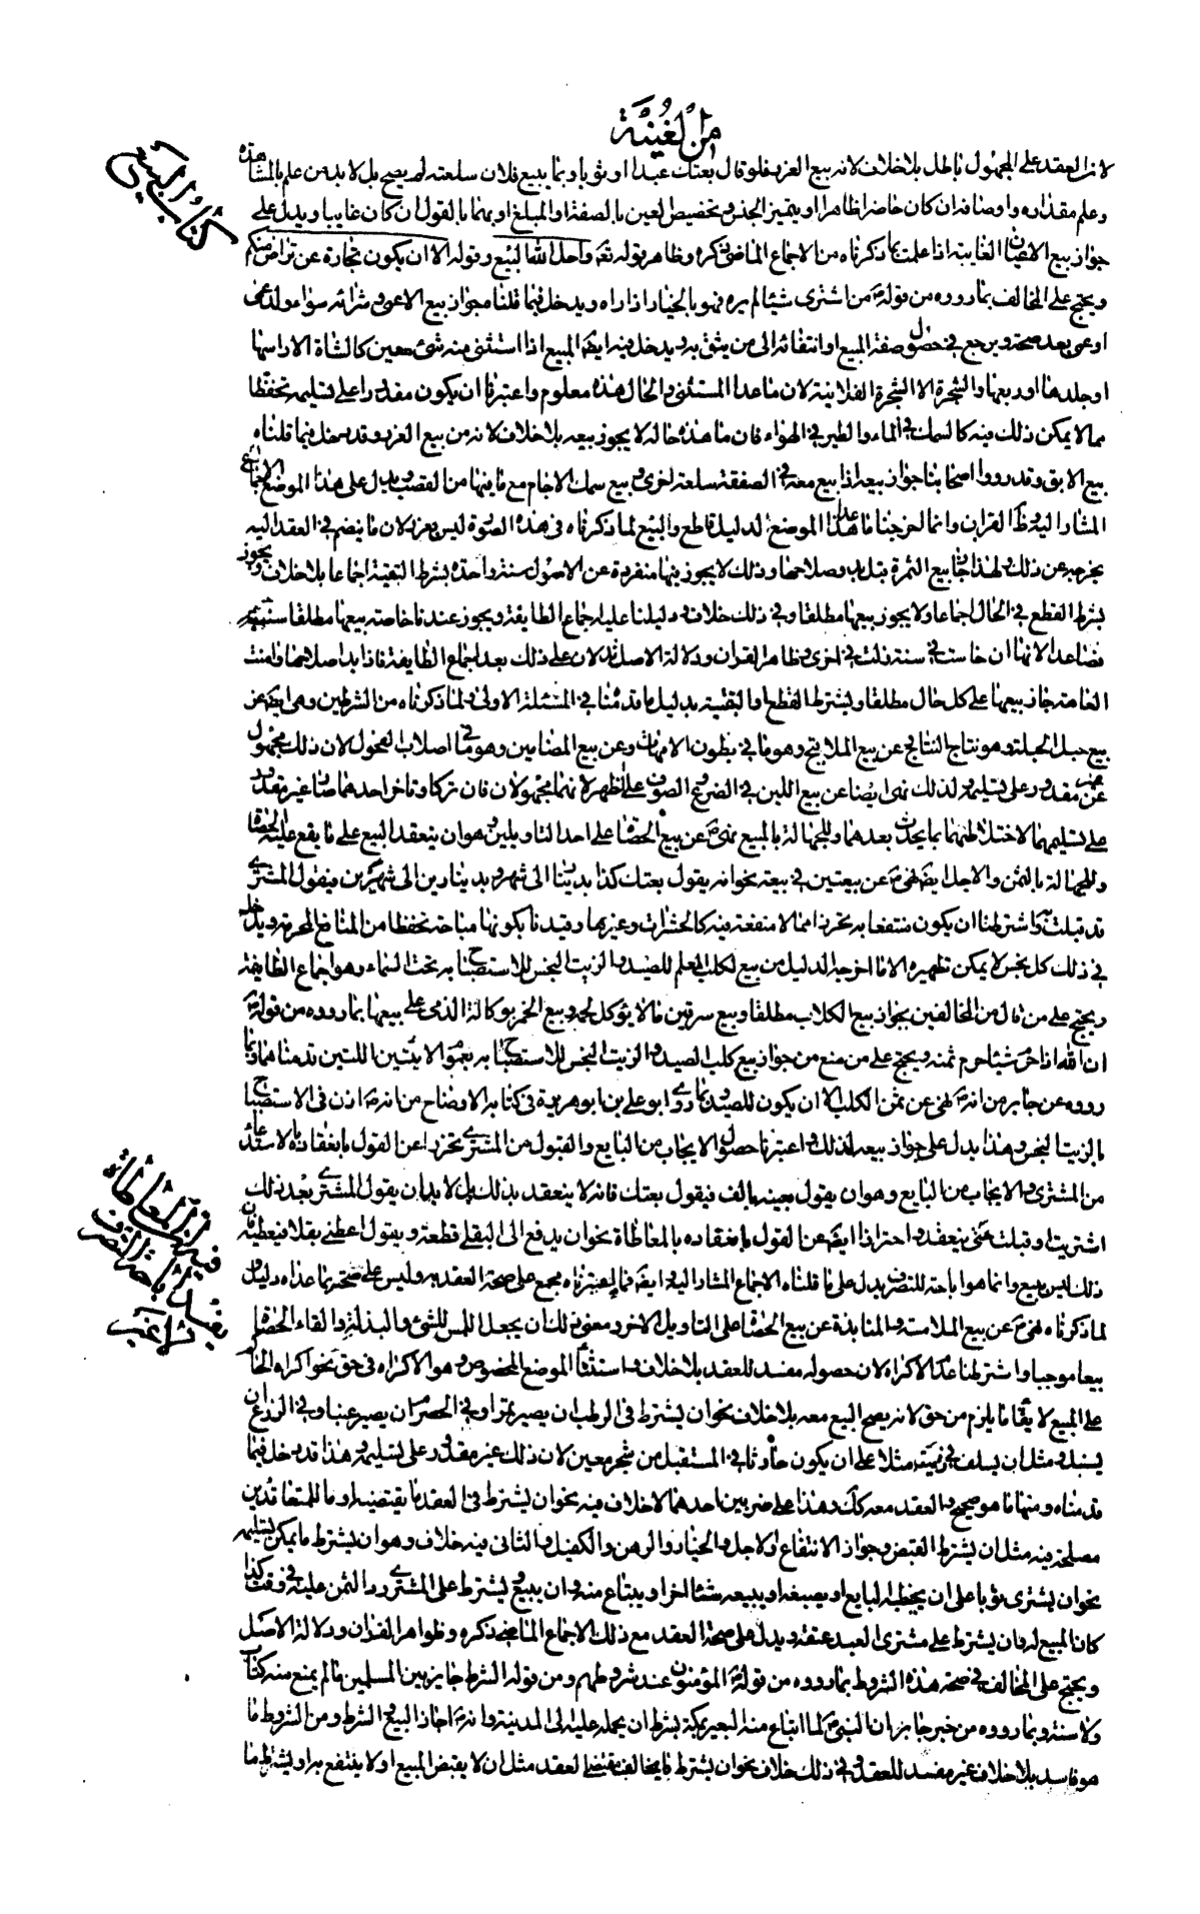 من الغنية
كتاب البيع
لان العقد على المجهول باطل بلا خلاف لانه بيع الغرر فلو قال بعتك عبدا او ثوبا او بما يبيع فلان سلعته لم يصح بل لا بد من علم بالمشاهدة
وعلم مقداره واوصافه ان كان حاضرا ظاهرا او بتميز الجنس وتخصيص العين بالصفة او المبلغ او بهما بالقول ان كان غايبا ويدل على
جواز بيع الاعيان الغايبة اذا علمت بما ذكرناه من الاجماع الماضي ذكره وظاهر قوله تعه واحل الله البيع وقوله الا ان يكون تجارة عن تراض منكم
ويحتج على المخالف بما رووه من قوله من اشترى شيئا لم يره فهو بالخيار اذا راه ويدخل فيما قلناه جواز بيع الاعمى وشرائه سواء ولد اعمى
او عمي بعد صحة ويرجع في حصول صفة المبيع او انتفائه الى من يثق به ويدخل فيه ايضا المبيع اذا استثنى منه شئ معين كالشاة الا راسها
او جلدها او ربعها والشجرة الا الشجرة الفلانية لان ما عدا المستثنى والحال هذه معلوم واعتبرنا ان يكون مقدورا على تسليمه تحفظا
مما لا يمكن ذلك فيه كالسمك في الماء والطير في الهواء فان ما هذه حاله لا يجوز بيعه بلا خلاف لانه من بيع الغرر وقد يدخل فيما قلناه
بيع الابق وقد رووا اصحابنا جواز بيعه اذا بيع معه في الصفقة سلعة اخرى وبيع سمك الاجام مع ما فيها من القصب ويدل على هذا الموضع الاجماع
المشار اليه وظ القران وانما اخرجنا ما عدا هذا الموضع لدليل قاطع والبيع لما ذكرناه في هذه الصورة ليس بغرر لان ما ينضم في العقد اليه
يخرجه عن ذلك ولهذا جاز بيع الثمرة قبل بدو صلاحها وذلك لا يجوز بيعها منفردة عن الاصول سنة واحدة بشرط التبقية اجماعا بلا خلاف ويجوز
بشرط القطع في الحال اجماعا ولا يجوز بيعها مطلقا وفي ذلك خلاف ودليلنا عليه اجماع الطايفة ويجوز عندنا خاصة بيعها مطلقا سنتين
فصاعدا لانها ان خاست في سنة زكت في اخرى وظاهر القران ودلالة الاصل يدلان على ذلك بعد اجماع الطايفة فاذا بدا صلاحها وامنت
العاهة جاز بيعها على كل حال مطلقا وبشرط القطع او التبقية بدليل ما قدمناه في المسئلة الاولى ولما ذكرناه من الشرطين نهى ايضا عن
بيع حبل الحبلة وهو نتاج النتاج وعن بيع الملاقيح وهو ما في بطون الامهات وعن بيع المضامين وهو ما في اصلاب الفحول لان ذلك مجهول
غير مقدور على تسليمه ولذلك نهى ايضا عن بيع اللبن في الضرع والصوف على الظهر لانهما مجهولان فان تركا وتاخر اخذهما صارا غير مقدور
على تسليمهما لاختلاطهما بما يحدث بعدهما وللجهالة بالمبيع نهى عن بيع الحصاة على احد التاويلين وهو ان ينعقد البيع على ما يقع عليه الحصاة
وللجهالة بالثمن والاجل ايضا نهى عن بيعتين في بيعة نحو انه يقول بعتك كذا بدينار الى شهر وبدينارين الى شهرين فيقول المشتري
قد قبلت واشترطنا ان يكون منتفعا به تحرزا مما لا منفعة فيه كالحشرات وغيرها وقيدنا بكونها مباحة تحفظا من المنافع المحرمة ويدخل
في ذلك كل نجس لا يمكن تطهيره الا ما اخرجه الدليل من بيع الكلب المعلم للصيد والزيت النجس للاستصباح به تحت السماء وهو اجماع الطايفة
ويحتج على من قال من المخالفين بجواز بيع الكلاب مطلقا وبيع سرقين ما لا يؤكل لحمه وبيع الخمر بوكالة الذمي على بيعها بما رووه من قوله
ان الله اذا حرم شيئا حرم ثمنه ويحتج على من منع من جواز بيع كلب الصيد والزيت النجس للاستصباح به بعموم الايتين اللتين قدمناهما وبما
رووه عن جابر من انه نهى عن ثمن الكلب الا ان يكون للصيد وما روى ابو علي بن ابو هريرة في كتابه الافصاح من انه اذن في الاستصباح
بالزيت النجس وهذا يدل على جواز بيعه لذلك واعتبرنا حصول الايجاب من البايع والقبول من المشتري تحرزا عن القول بانعقاده بالاستدعاء
من المشتري والايجاب من البايع وهو ان يقول بعنيه بالف فيقول بعتك فانه لا ينعقد بذلك بل لا بد ان يقول المشتري بعد ذلك
اشتريت او قبلت حتى ينعقد واحترازا ايضا عن القول بانعقاده بالمعاطاة نحو ان يدفع الى البقلي قطعة ويقول اعطني بقلا فيعطيه فان
ذلك ليس ببيع وانما هو اباحة للتصرف يدل على ما قلناه الاجماع المشار اليه وايضا فما اعتبرناه مجمع على صحة العقد به وليس على صحته بما عداه دليل و
لما ذكرناه نهى عن بيع الملامسة والمنابذة عن بيع الحصاة على التاويل الاخر ومعنى ذلك ان يجعل اللمس للشئ والنبذ له والقاء الحصاة
بيعا موجبا واشترطنا عدم الاكراه لان حصوله مفسد للعقد بلا خلاف واستثنا الموضع المخصوص وهو الاكراه في حق نحو اكراه الحاكم
على البيع لايفاء ما يلزم من حق لانه يصح البيع معه بلا خلاف نحو ان يشترط في الرطب ان يصير تمرا وفي الحصرم ان يصير عنبا وفي الزرع ان
يسنبل ومثل ان يسلف في زيته مثلا على ان يكون حادثا في المستقبل من شجر معين لان ذلك غير مقدور على تسليمه وهذا قد يدخل فيما
قدمناه ومنها ما هو صحيح والعقد معه كك وهذا على ضربين احدهما لا خلاف فيه نحو ان يشترط في العقد ما يقتضيه او ما للمتعاقدين
مصلحة فيه مثل ان يشترط القبض وجواز الانتفاع والاجل والخيار والرهن والكفيل والثاني فيه خلاف وهو ان يشترط ما يمكن تسليمه
نحو ان يشترى ثوبا على ان يخيطه البايع او يصبغه او يبيعه شيئا اخر او يبتاع منه وان يبيع ويشترط على المشتري رد الثمن عليه في وقت كذا
كان المبيع له وان يشترط على مشتري العبد عتقه ويدل على صحة العقد مع ذلك الاجماع الماضي ذكره وظواهر القران ودلالة الاصل
ويحتج على المخالف في صحة هذه الشروط بما رووه من قوله المؤمنون عند شروطهم ومن قوله الشرط جايز بين المسلمين ما لم يمنع منه كتاب
ولا سنة وبما رووه من خبر جابر ان النبي لما ابتاع منه البعير بمكة بشرط ان يحمله عليه الى المدينة وانه اجاز البيع والشرط ومن الشروط ما
هو فاسد بلا خلاف غير مفسد للعقد وفي ذلك خلاف نحو ان يشترط ما يخالف مقتضى العقد مثل ان لا يقبض المبيع او لا ينتفع به او يشترط ما